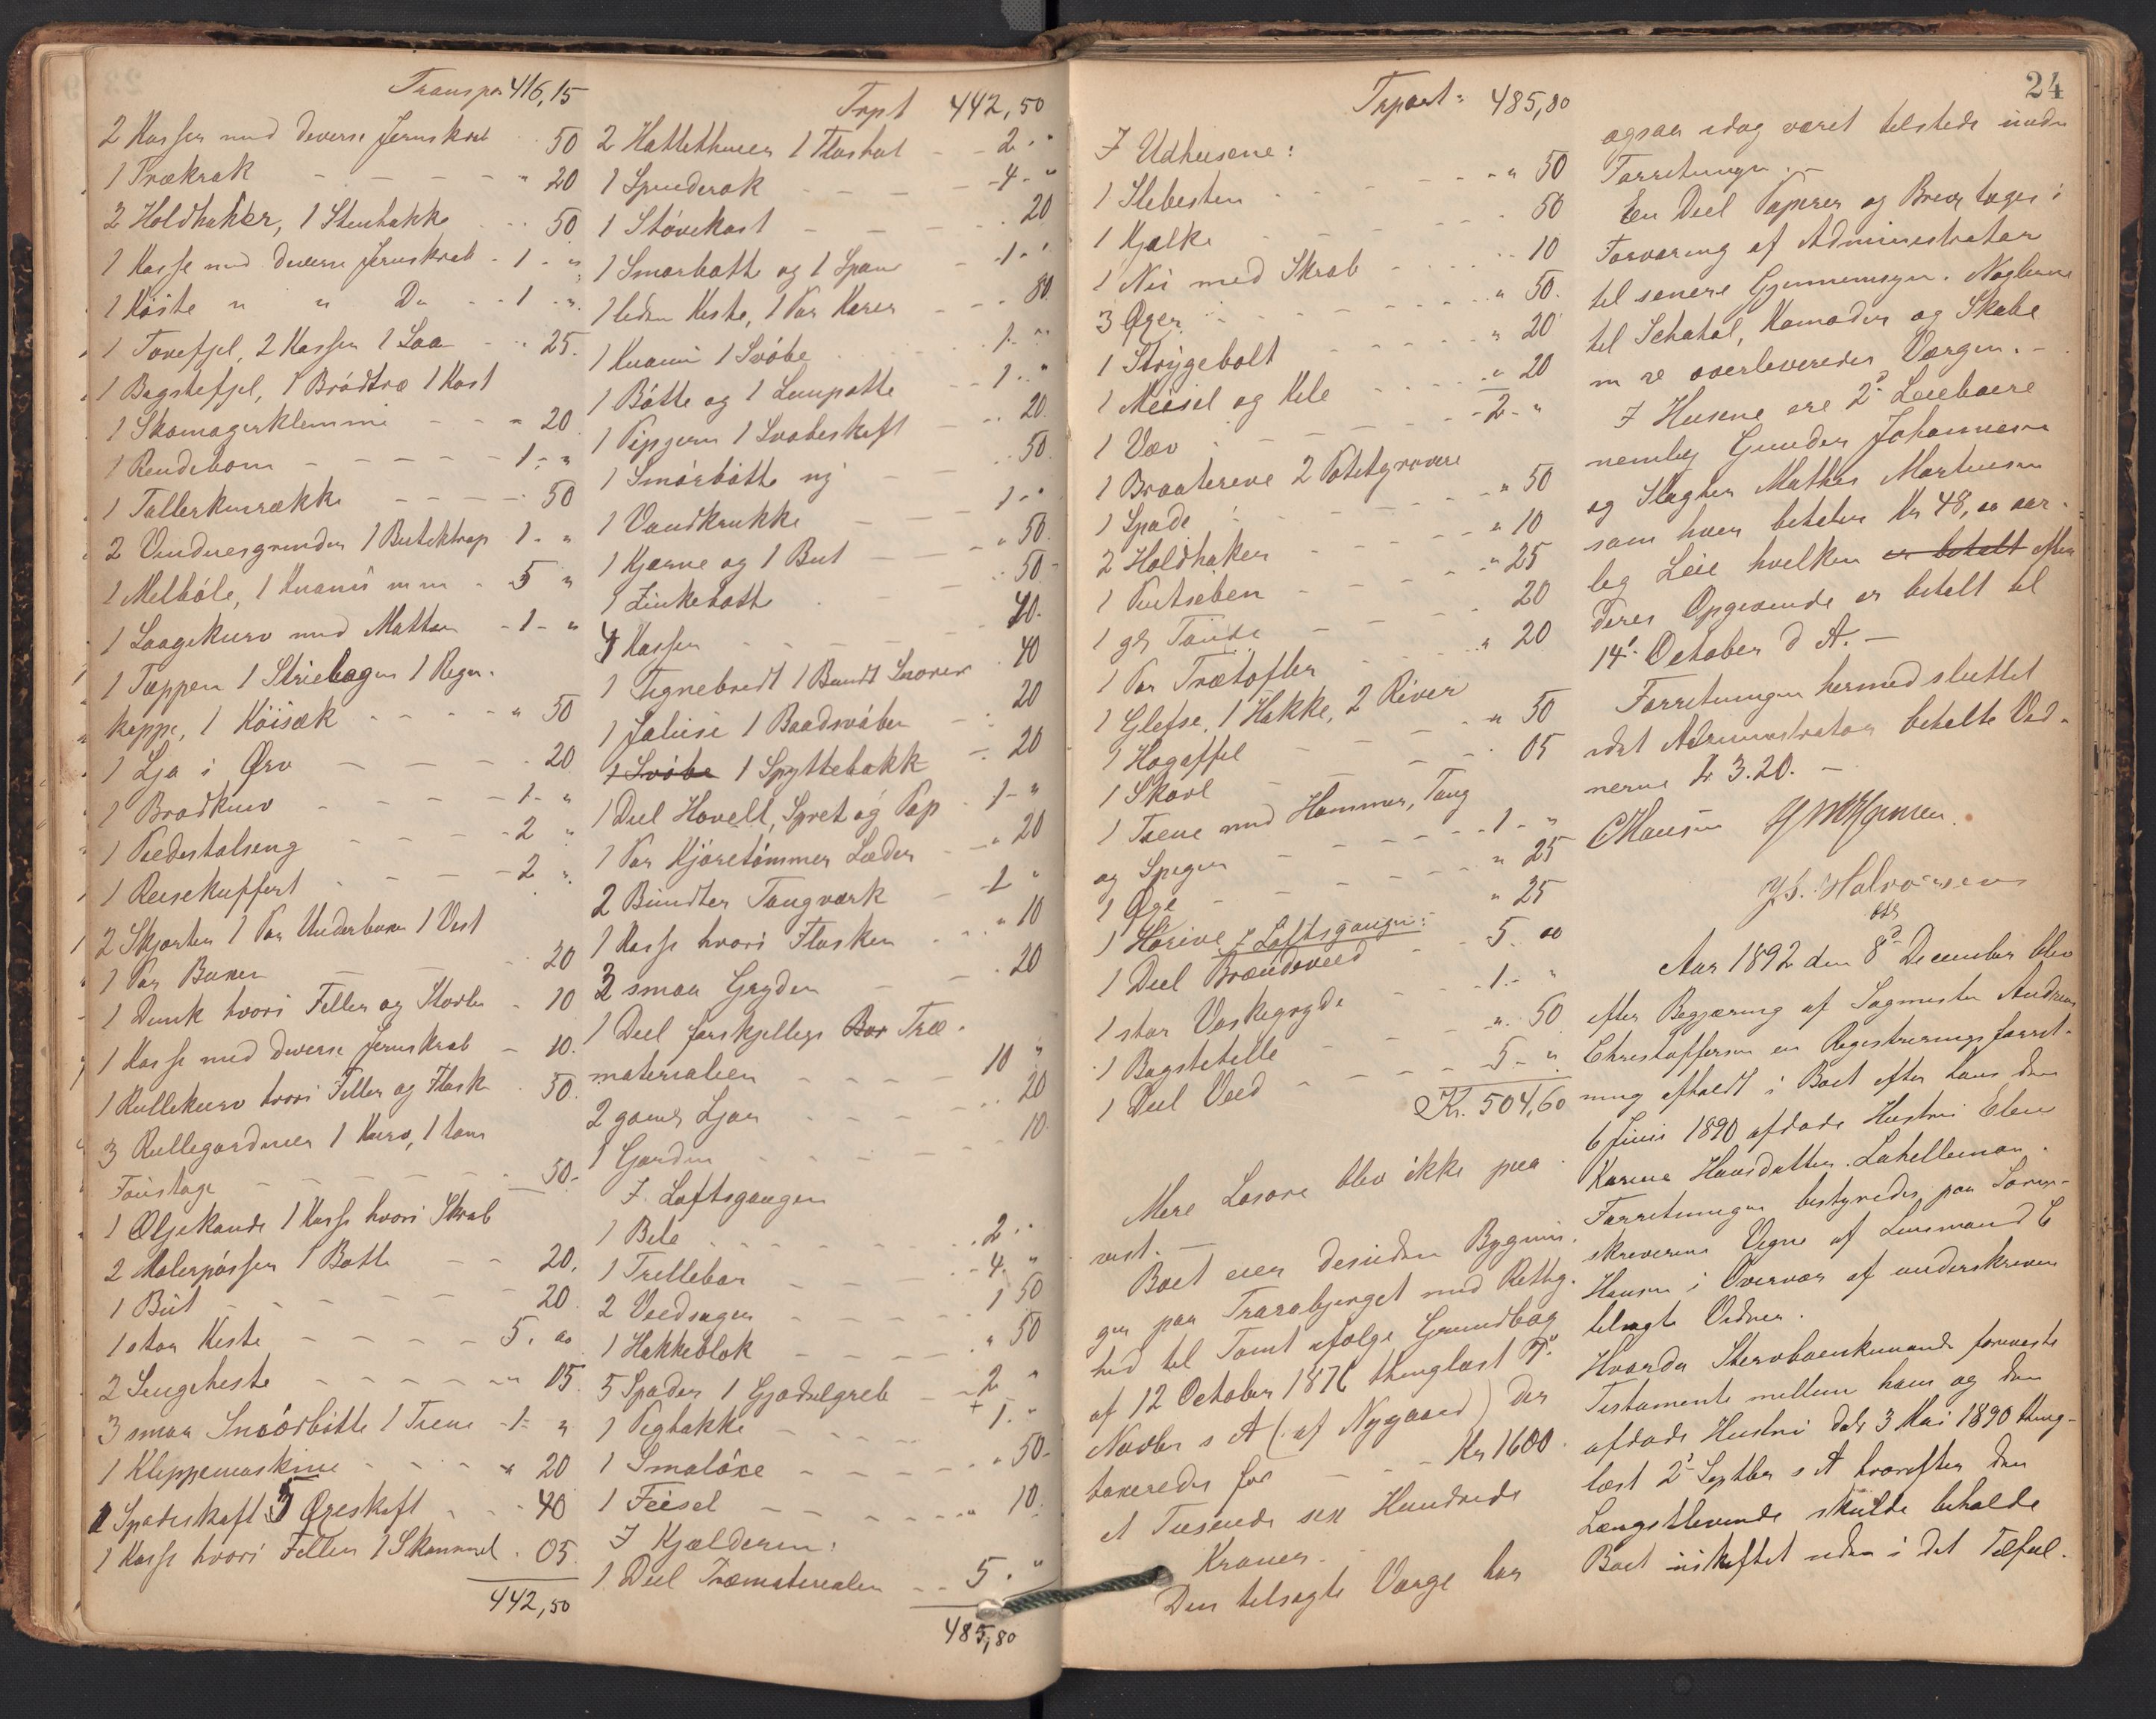 Transpor 416,15
2 Kasser med diverse Jernskrab " 50
1 Trækrak - - - - " 20
2 Holdhaker, 1 Stenhakke - 50
1 Kasse med diverse Jernskrab - 1 - "
1 Kiste " " Do - - 1 - "
1 Tovefjel, 2 Kasser 1 Laa - - 25.
1 Bagstefjel, 1 Brødtræ 1 Kost
1 Skomagerklemme - - - 20
1 Rendebom - - - - - 1 - "
1 Tallerkenrække - - - - 50
2 Vinduesgrinder 1 Butiktrap 1 - "
1 Melbøle, 1 Knami m m - 5 "
1 Laagekurv med Matter - 1 - "
1 Tæppen 1 Striebager 1 Regn-
kappe, 1 Høisæk - - - " 50
1 Lja i Orv - - - 20
1 Brødkurv - - - - 1 - "
1 Piedestalseng - - - 2 "
1 Reisekuffert - - - - 2 "
2 Skjorter 1 Par Underbuxer 1 Vest
1 Par Buxer - - - 20
1 Dunk hvori Filler og Støvler - 10
1 Kasse med diverse Jernskrab - 10.
1 Rullekurv hvori Filler og Flasker . 50.
3 Rullegardiner 1 Kurv, 1 tom
Foustage - - - - - 50 -
1 Oljekande 1 Kasse hvori Skrab
2 Malerpøsser 1 Bøtte - - 20.
1 Bùt - - - - - - 20
1 stor Kiste - - - - - 5. oo
2 Sengeheste - - - - " 05
3 smaa Smørbøtte 1 Tiene - 1 - "
1 Klippemaskine - - - " 20
1 Spadeskaft 3 Øxeskaft - - 40
1 Kasse hvori Filler 1 Skammel . 05
442,50
Trpt 442,50
2 Kattethuer 1 Floshat - - 2 - "
1 Spinderok - - - - - 4 - "
1 Støvekost - - - - . 20
1 Smørbøtte og 1 Spand - 1 - "
1 liden Kiste, 1 Par Karer - - 80.
1 Knami 1 Svøbe - - - 1 - "
1 Bøtte og 1 Limpotte - - 1 - "
1 Pipejern 1 Svøbeskaft - - 20.
1 Smørbøtte ny - - - 50.
1 Vandkrukke - - - 1 - "
1 Kjærne og 1 But - - - " 50.
1 Zinkebøtte - - - - 50 -
4 Kasser - - - - 40.
1 Tegnebredt 1 Bundt Snorer . 40
1 Jalusi 1 Baadsvøber - - 20
1 Svøbe 1 Spyttebakk - 20
1 Deel Hovell, Spret og Pap . 1 - "
1 Par Kjøretømmer Læder - " 20
2 Bundter Tougværk - 1 "
1 Kasse hvori Flasker - - " 10
3 smaa Gryder - - - . 20
1 Deel forskjellige Bor Træ-
materialier - - - - 10 "
2 gamle Ljaer - - - - 20
1 Gardin - - - - - 10
I Loftsgangen
1 Bete - - - - - 2 - "
1 Trillebør - - - - 4 - "
2 Vedsager - - - - 1 50
1 Hakkeblok - - - - " 50
5 Spader 1 Gjødselgreb - 2 "
1 Pighakke - - - - + 1 . "
1 Smaløxe - - - - - " 50 -
1 Feisel - - - - - " 10.
I Kjælderen:
1 Deel Træmaterialer - - 5 . "
485,80
24
Trport: 485,80
I Udhusene:
1 Slibesten - - - - " 50
1 Kjælke - - - - - 50
1 Nei med Skrab - - - - 10
3 Øger - - - - - " 50.
1 Strygebolt - - - - " 20
1 Meisel og Kile - - - " 20
1 Væv - - - - - - 2 - "
1 Braatereve 2 Potetgravere
1 Spade - - - - - - " 50
2 Holdhaker - - - - " 10
1 Puttseben - - - - " 25
1 gl Tønde - - - - 20
1 Par Trætøfler - - - " 20
1 Glefse, 1 Hakke, 2 River
1 Høgaffel - - - - " 50
1 Skovl - - - - 05
1 Tiene med Hammer, Tang
og Spiger - - - - 1 - "
1 Øge - - - - " 25
1 Hørive I Loftsgangen: " 25
1 Deel Brændeved - - 5. oo
1 stor Vaskegryde - - 1 - "
1 Bagstehelle - - - " 50
1 Deel Veed - - - - 5 - "
Kr. 504,60
Mere Løsøre blev ikke paa-
vist. -
Boet eier desuden Bygnin-
ger paa Trarabjerget med Rettig-
hed til Tomt ifølge Grundbog
af 12 October 1876 thinglæst 7de
Novbr s A (af Nygaard) der
taxeredes for - - - Kr 1600.
et Tusende sex Hundrede
Kroner.
Den tilsagte Værge har
ogsaa idag været tilstede under
Forretningen. -
En Deel Papirer og Breve tages i
Forvaring af Administrator
til senere Gjennemsyn. Nøglerne
til Schatol, Komoder og Skabe
m v overleveredes Værgen. -
I Husene ere 2de Leieboere
nemlig Gunder Johannesen
og Slagter Mathis Martinsen
som hver betaler Kr 48,oo aar-
lig Leie hvilken er betalt efter
deres Opgivende er betalt til
14de October d A. -
Forretningen hermed sluttet
idet Administrator betalte Vid-
nerne Kr 3.20. -
C Hansen
Y. S. Halvorsen
Aar 1892 den 8de December blev
efter Begjæring af Sagmester Andreas
Christoffersen en Registreringsforret-
ning afholdt i Boet efter hans den
6 Juni 1890 afdøde Hustru Elen
Karine Hansdatter Lahelleman.
Forretningen bestyredes paa Soren-
skriverens Vegne af Lensmand C
Hansen i Overvær af underskrevne
tilsagte Vidner.
Hvorda Stervboenkemand foreviste
Testamente mellem ham og den
afdøde Hustru dat 3 Mai 1890 thing-
læst 2de Septbr s A hvorefter den
Længstlevende skulde beholde
Boet uskiftet uden i det Tilfæl-